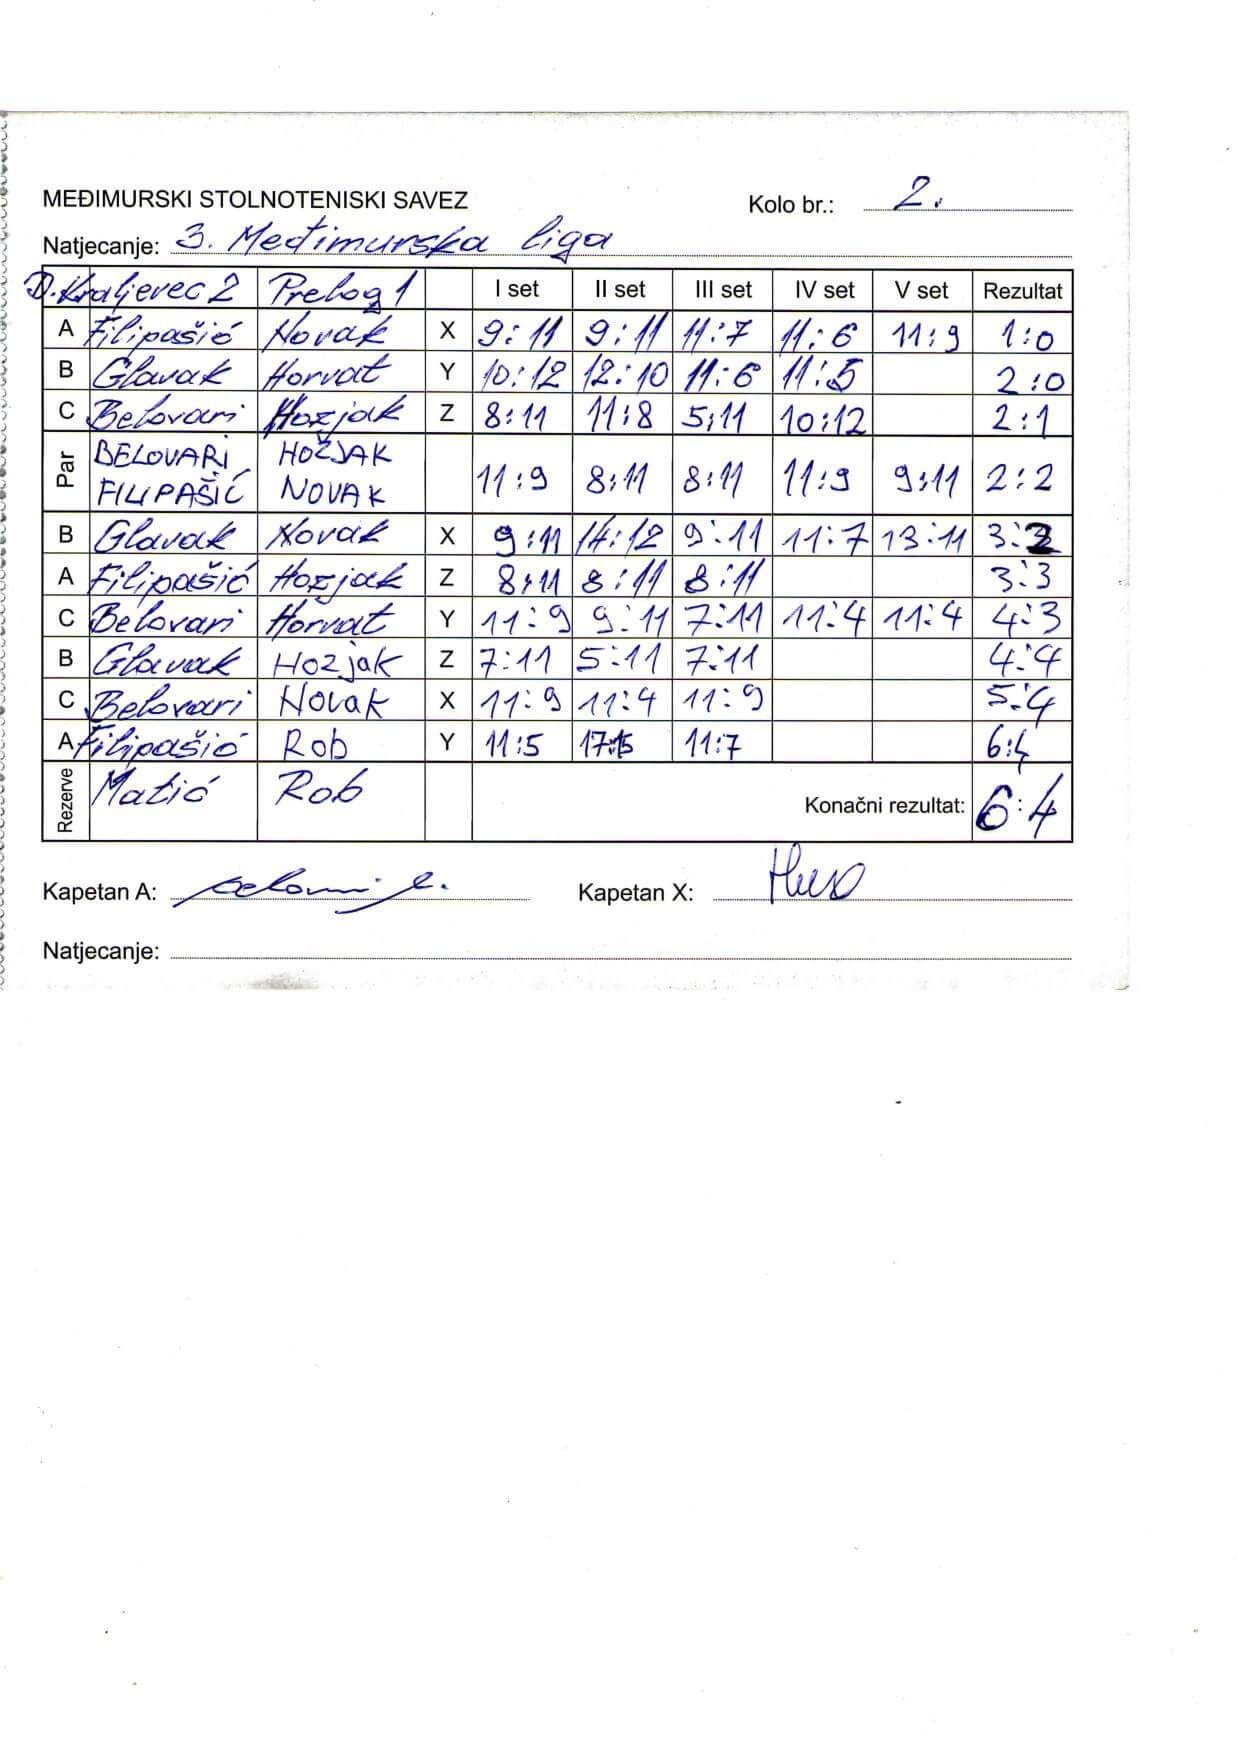 MEĐIMURSKI STOLNOTENISKI SAVEZ Kolo br.: 2.
Natjecanje: 3. Međimurska liga
D.Kraljevec 2 Prelog 1 I set II set III set IV set V set Rezultat
A Filipašić Novak X 9:11 9:11 11:7 11:6 11:9 1:0
B Glavak Horvat Y 10:12 12:10 11:6 11:5 2:0
C Belovari Hozjak Z 8:11 11:8 5:11 10:12 2:1
Par BELOVARI HOŽJAK
FILIPAŠIĆ NOVAK 11:9 8:11 8:11 11:9 9:11 2:2
B Glavak Novak X 9:11 14:12 9:11 11:7 13:11 3:2
A Filipašić Hozjak Z 8:11 8:11 8:11 3:3
C Belovari Horvat Y 11:9 9:11 7:11 11:4 11:4 4:3
B Glavak Hozjak Z 7:11 5:11 7:11 4:4
C Belovari Novak X 11:9 11:4 11:9 5:4
A Filipašić Rob Y 11:5 17:15 11:7 6:4
Rezerve Matić Rob Konačni rezultat: 6:4
Kapetan A: Kapetan X:
Natjecanje: